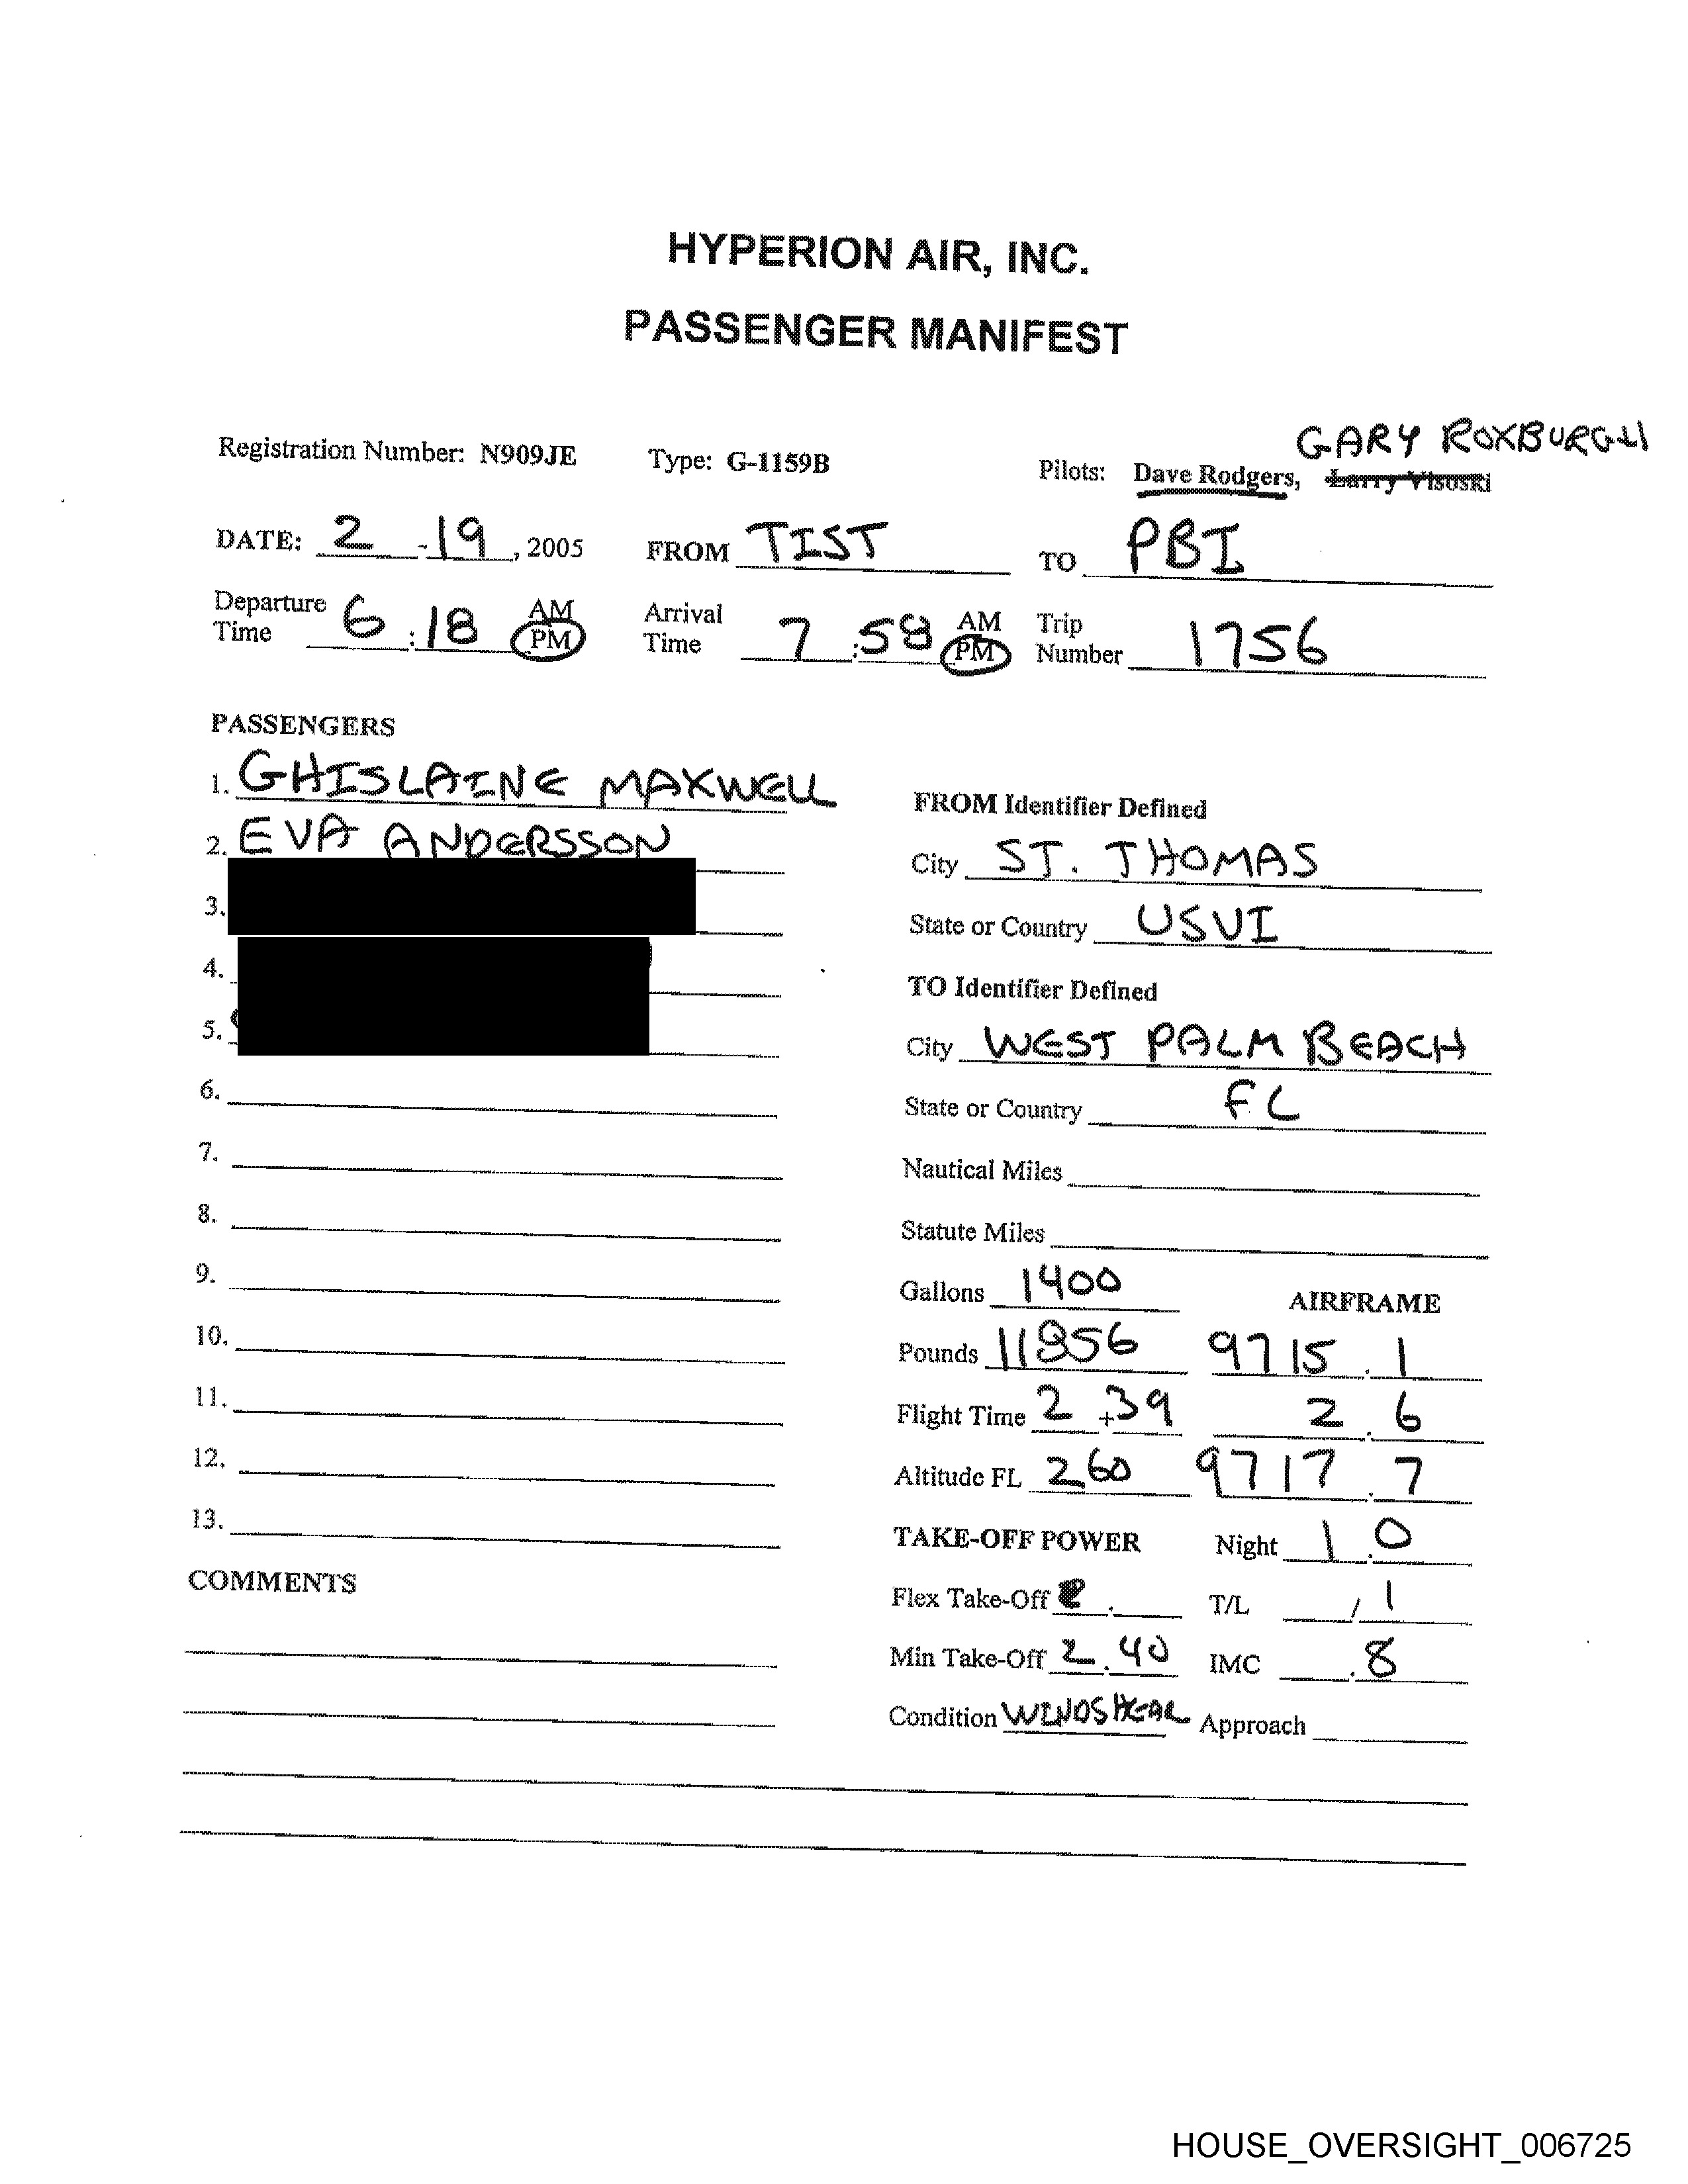 HYPERION AIR, INC.
PASSENGER MANIFEST
GARY ROXBURGH
Registration Number: N909JE Type: G-1159B Pilots: Dave Rodgers, Larry Visoski
DATE: 2 - 19, 2005 FROM TIST TO PBI
Departure Time 6:18 AM PM Arrival Time 7:58 AM PM Trip Number 1756
PASSENGERS
1. GHISLAINE MAXWELL
2. EVA ANDERSSON
3.
4.
5.
6.
7.
8.
9.
10.
11.
12.
13.
COMMENTS
FROM Identifier Defined
City ST. THOMAS
State or Country USVI
TO Identifier Defined
City WEST PALM BEACH
State or Country FL
Nautical Miles
Statute Miles
Gallons 1400 AIRFRAME
Pounds 11856 9715.1
Flight Time 2+39 2.6
Altitude FL 260 9717.7
TAKE-OFF POWER Night 1.0
Flex Take-Off . T/L / 1
Min Take-Off 2.40 IMC .8
Condition WINDSHEAR Approach
HOUSE_OVERSIGHT_006725